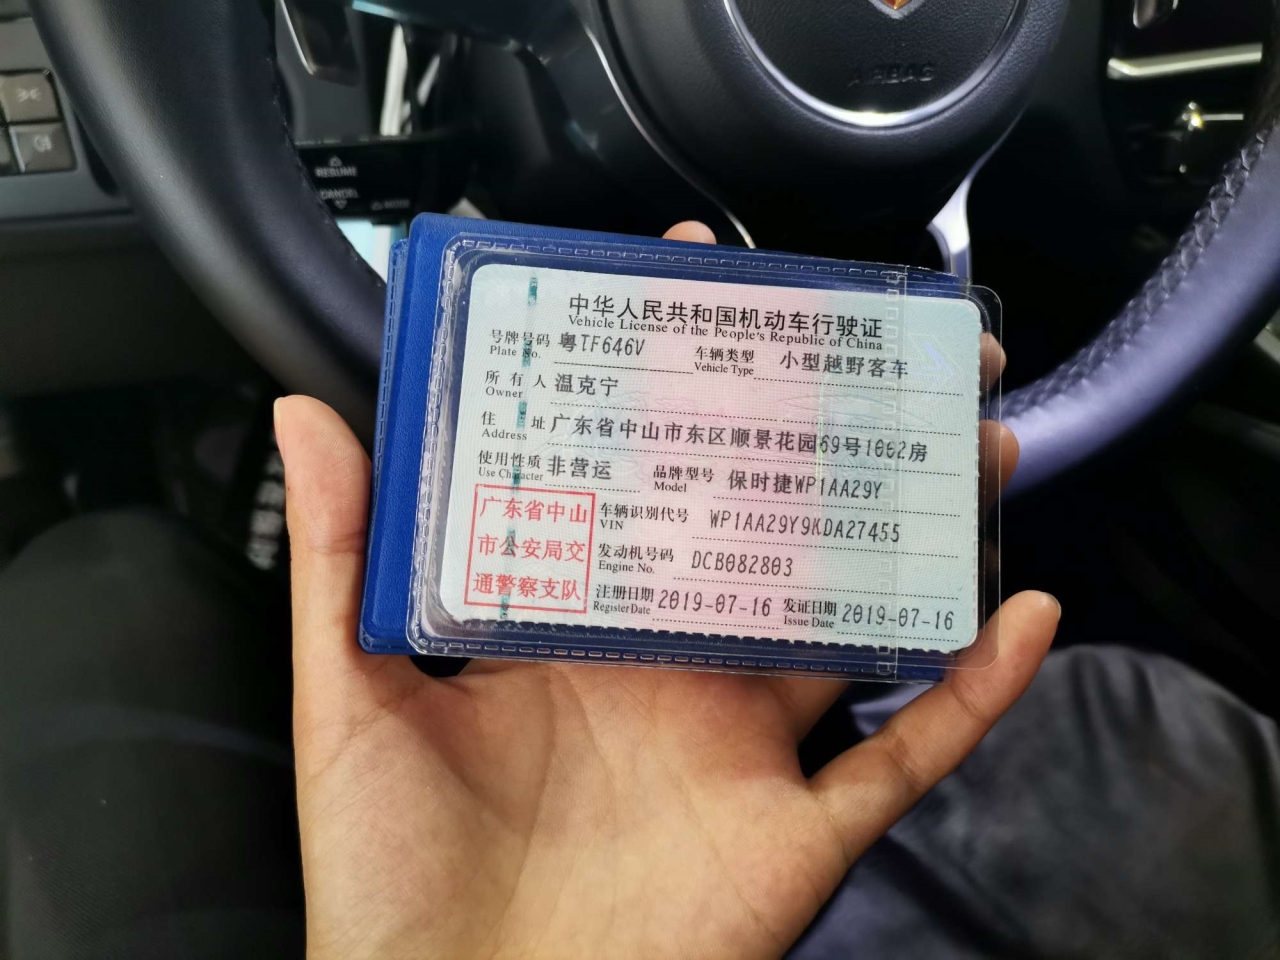 RESUME
CANCEL
AIRBAG
中华人民共和国机动车行驶证
Vehicle License of the People's Republic of China
号牌号码 粤TF646V 车辆类型 小型越野客车
Plate No. Vehicle Type
所有人 温克宁
Owner
住址 广东省中山市东区顺景花园69号1002房
Address
使用性质 非营运 品牌型号 保时捷WP1AA29Y
Use Character Model
广东省中山
市公安局交
通警察支队
车辆识别代号 WP1AA29Y9KDA27455
VIN
发动机号码 DCB082803
Engine No.
注册日期 2019-07-16 发证日期 2019-07-16
Register Date Issue Date